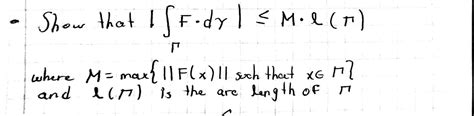 - Show that | ∫_Γ F · dγ | ≤ M · l(Γ)
where M = max{ ||F(x)|| such that x ∈ Γ }
and l(Γ) is the arc length of Γ